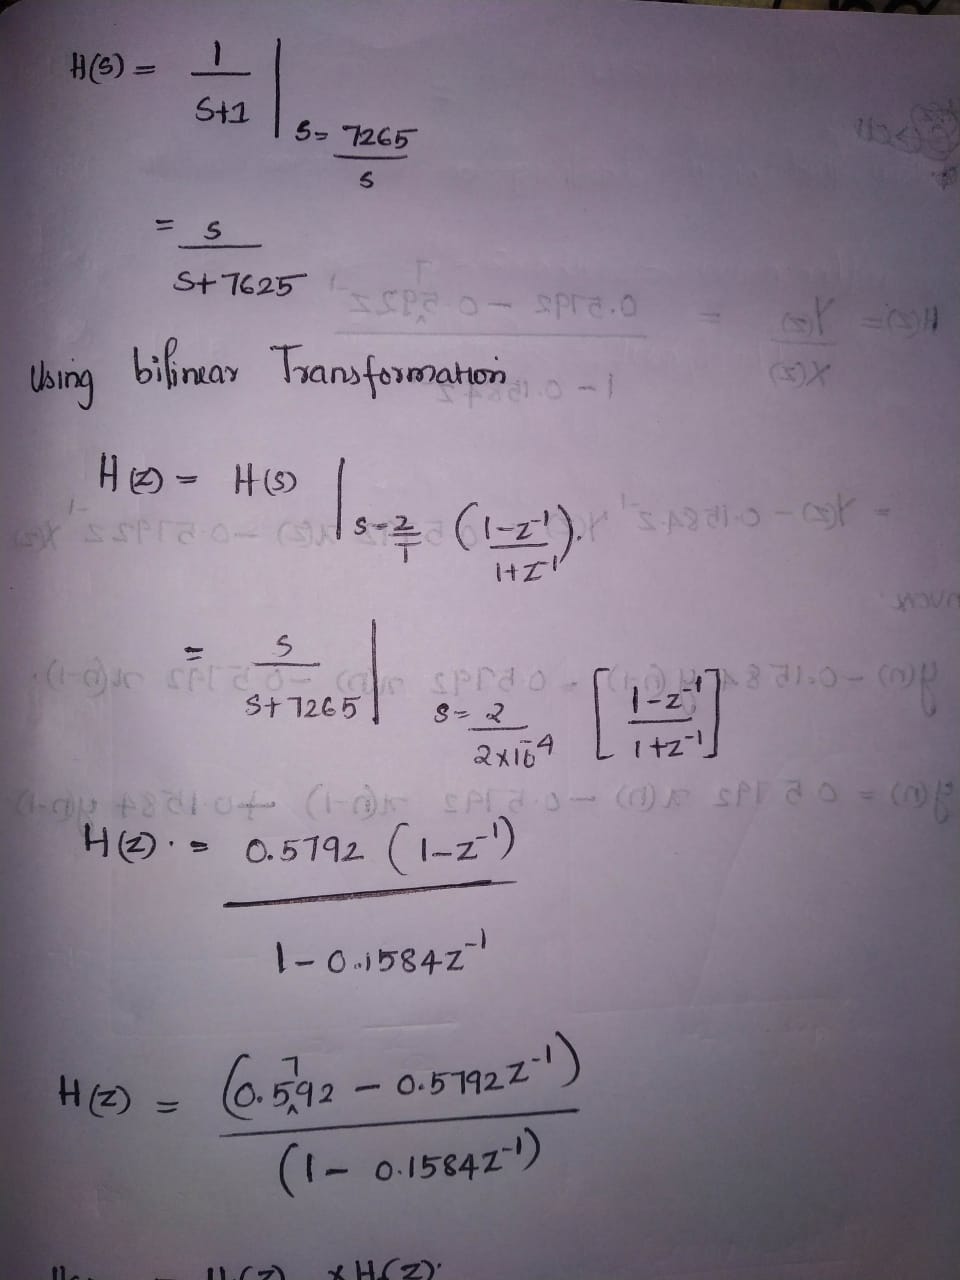 H(s) = 1/(S+1) | S = 7265/s
= s/(S+7625)
Using bilinear Transformation
H(z) = H(s) | s = 2/T ((1-z⁻¹)/(1+z⁻¹)).
= s/(S+7265) | s = 2/(2×10⁻⁴) [(1-z⁻¹)/(1+z⁻¹)]
H(z). = 0.5792 (1-z⁻¹)
1-0.1584z⁻¹
H(z) = (0.5792 - 0.5792z⁻¹)
(1 - 0.1584z⁻¹)